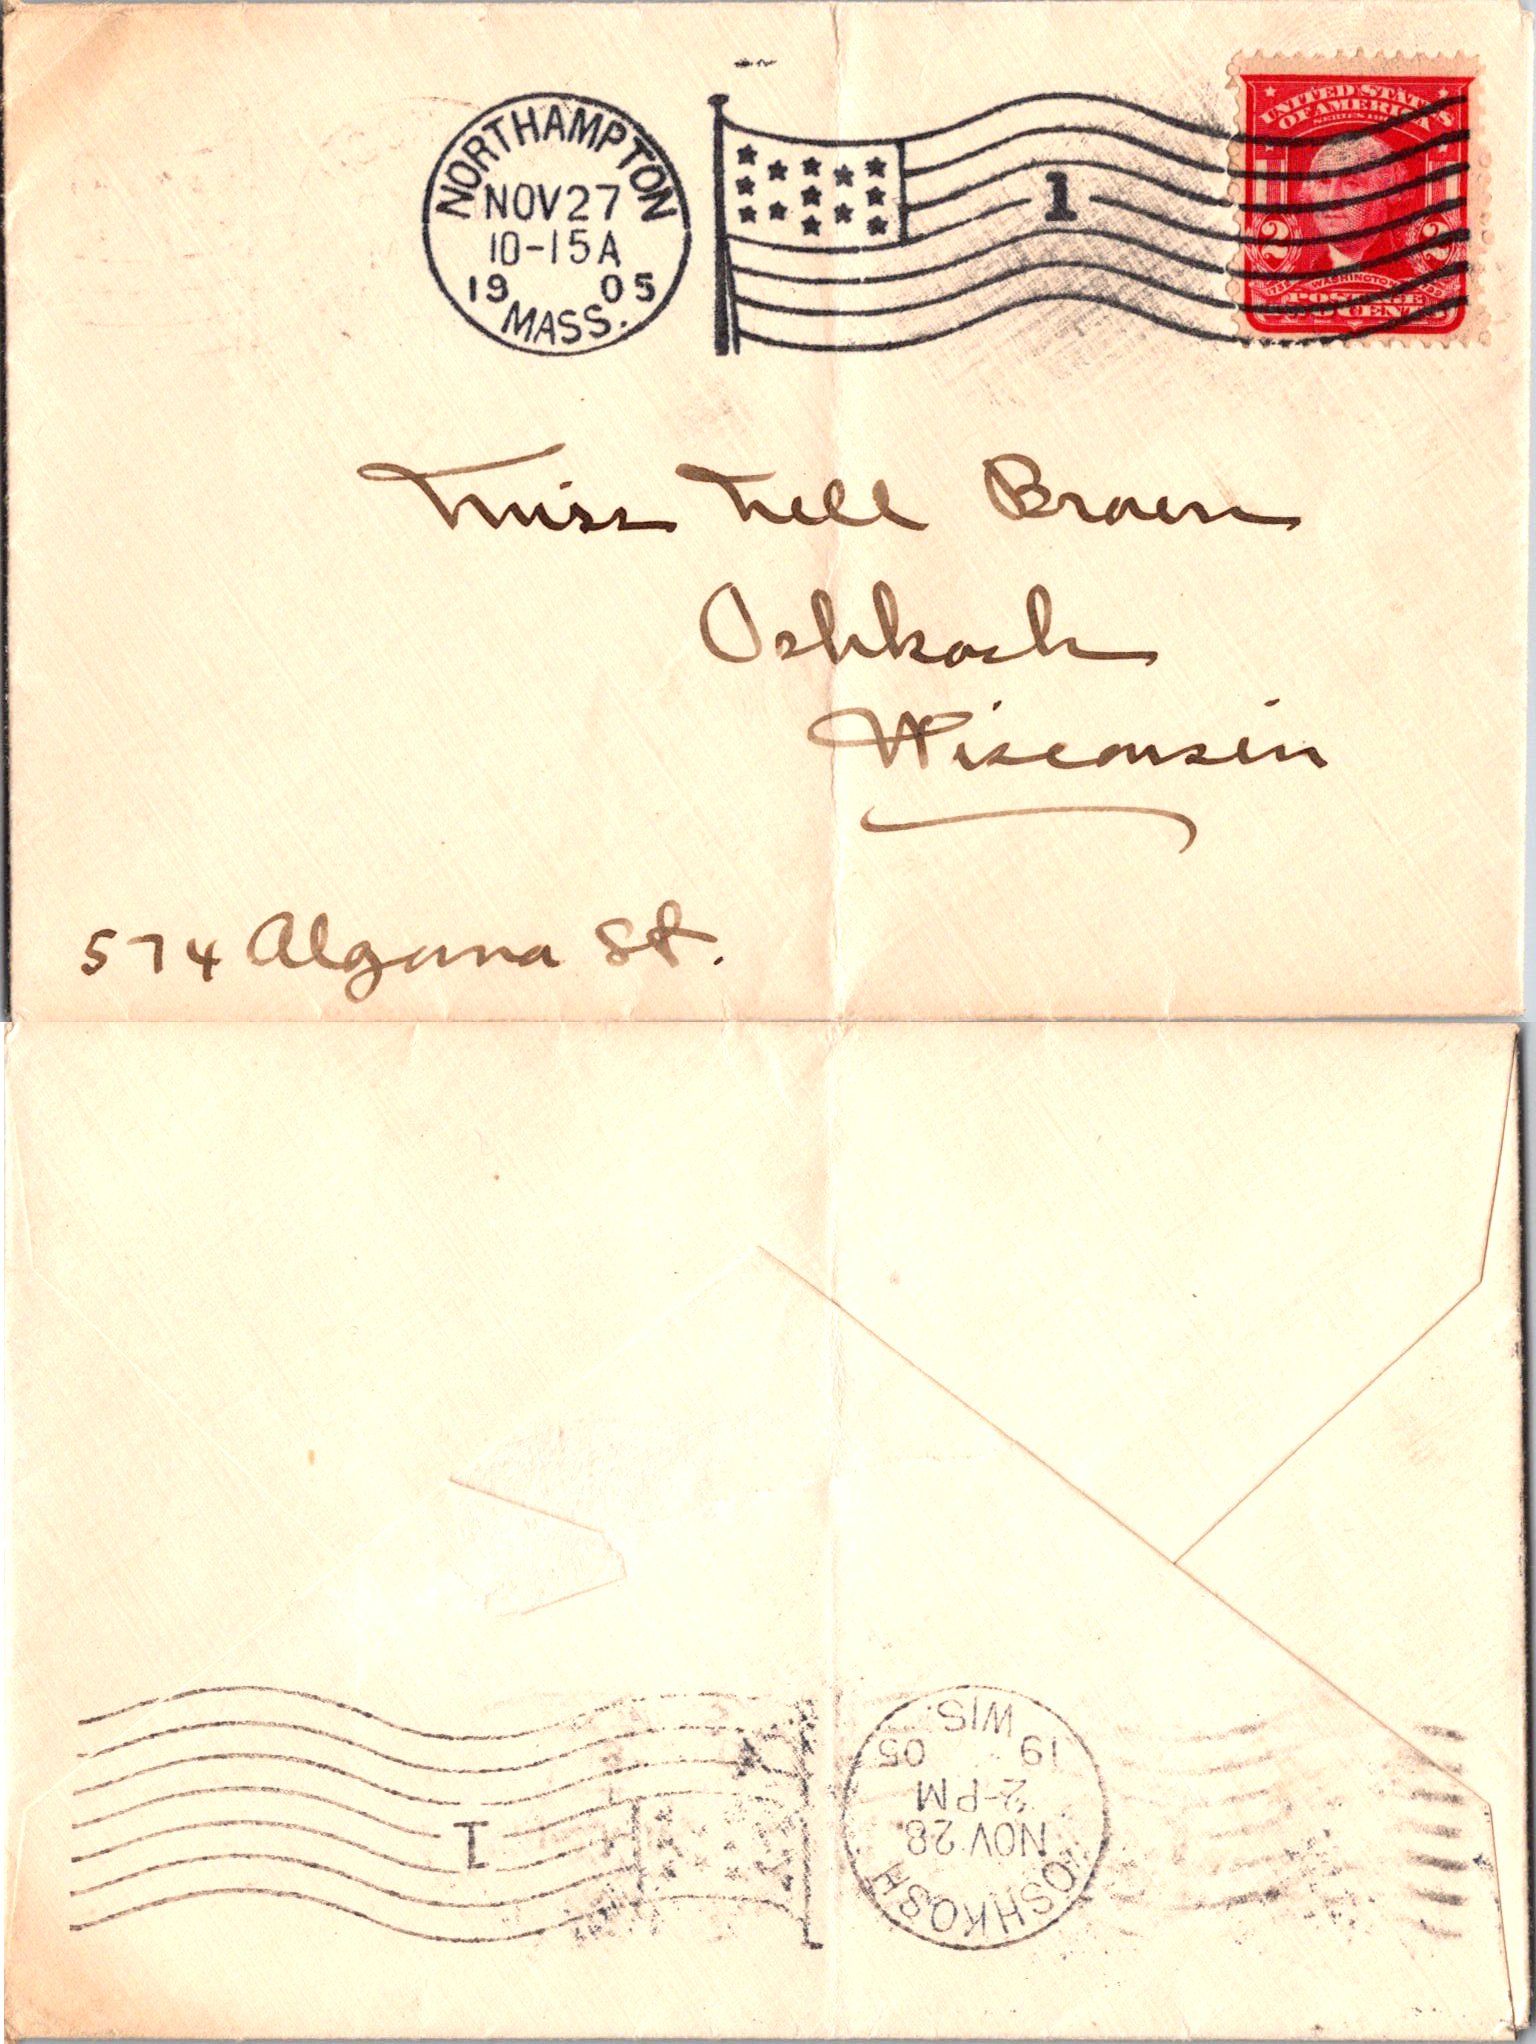 NORTHAMPTON
NOV 27
10-15A
19 05
MASS.
1
UNITED STATES
OF AMERICA
2 2
WASHINGTON
POSTAGE
Miss Nell Brown
Oshkosh
Wisconsin
574 Algoma St.
OSHKOSH
NOV 28
2-PM
19 05
WIS.
1